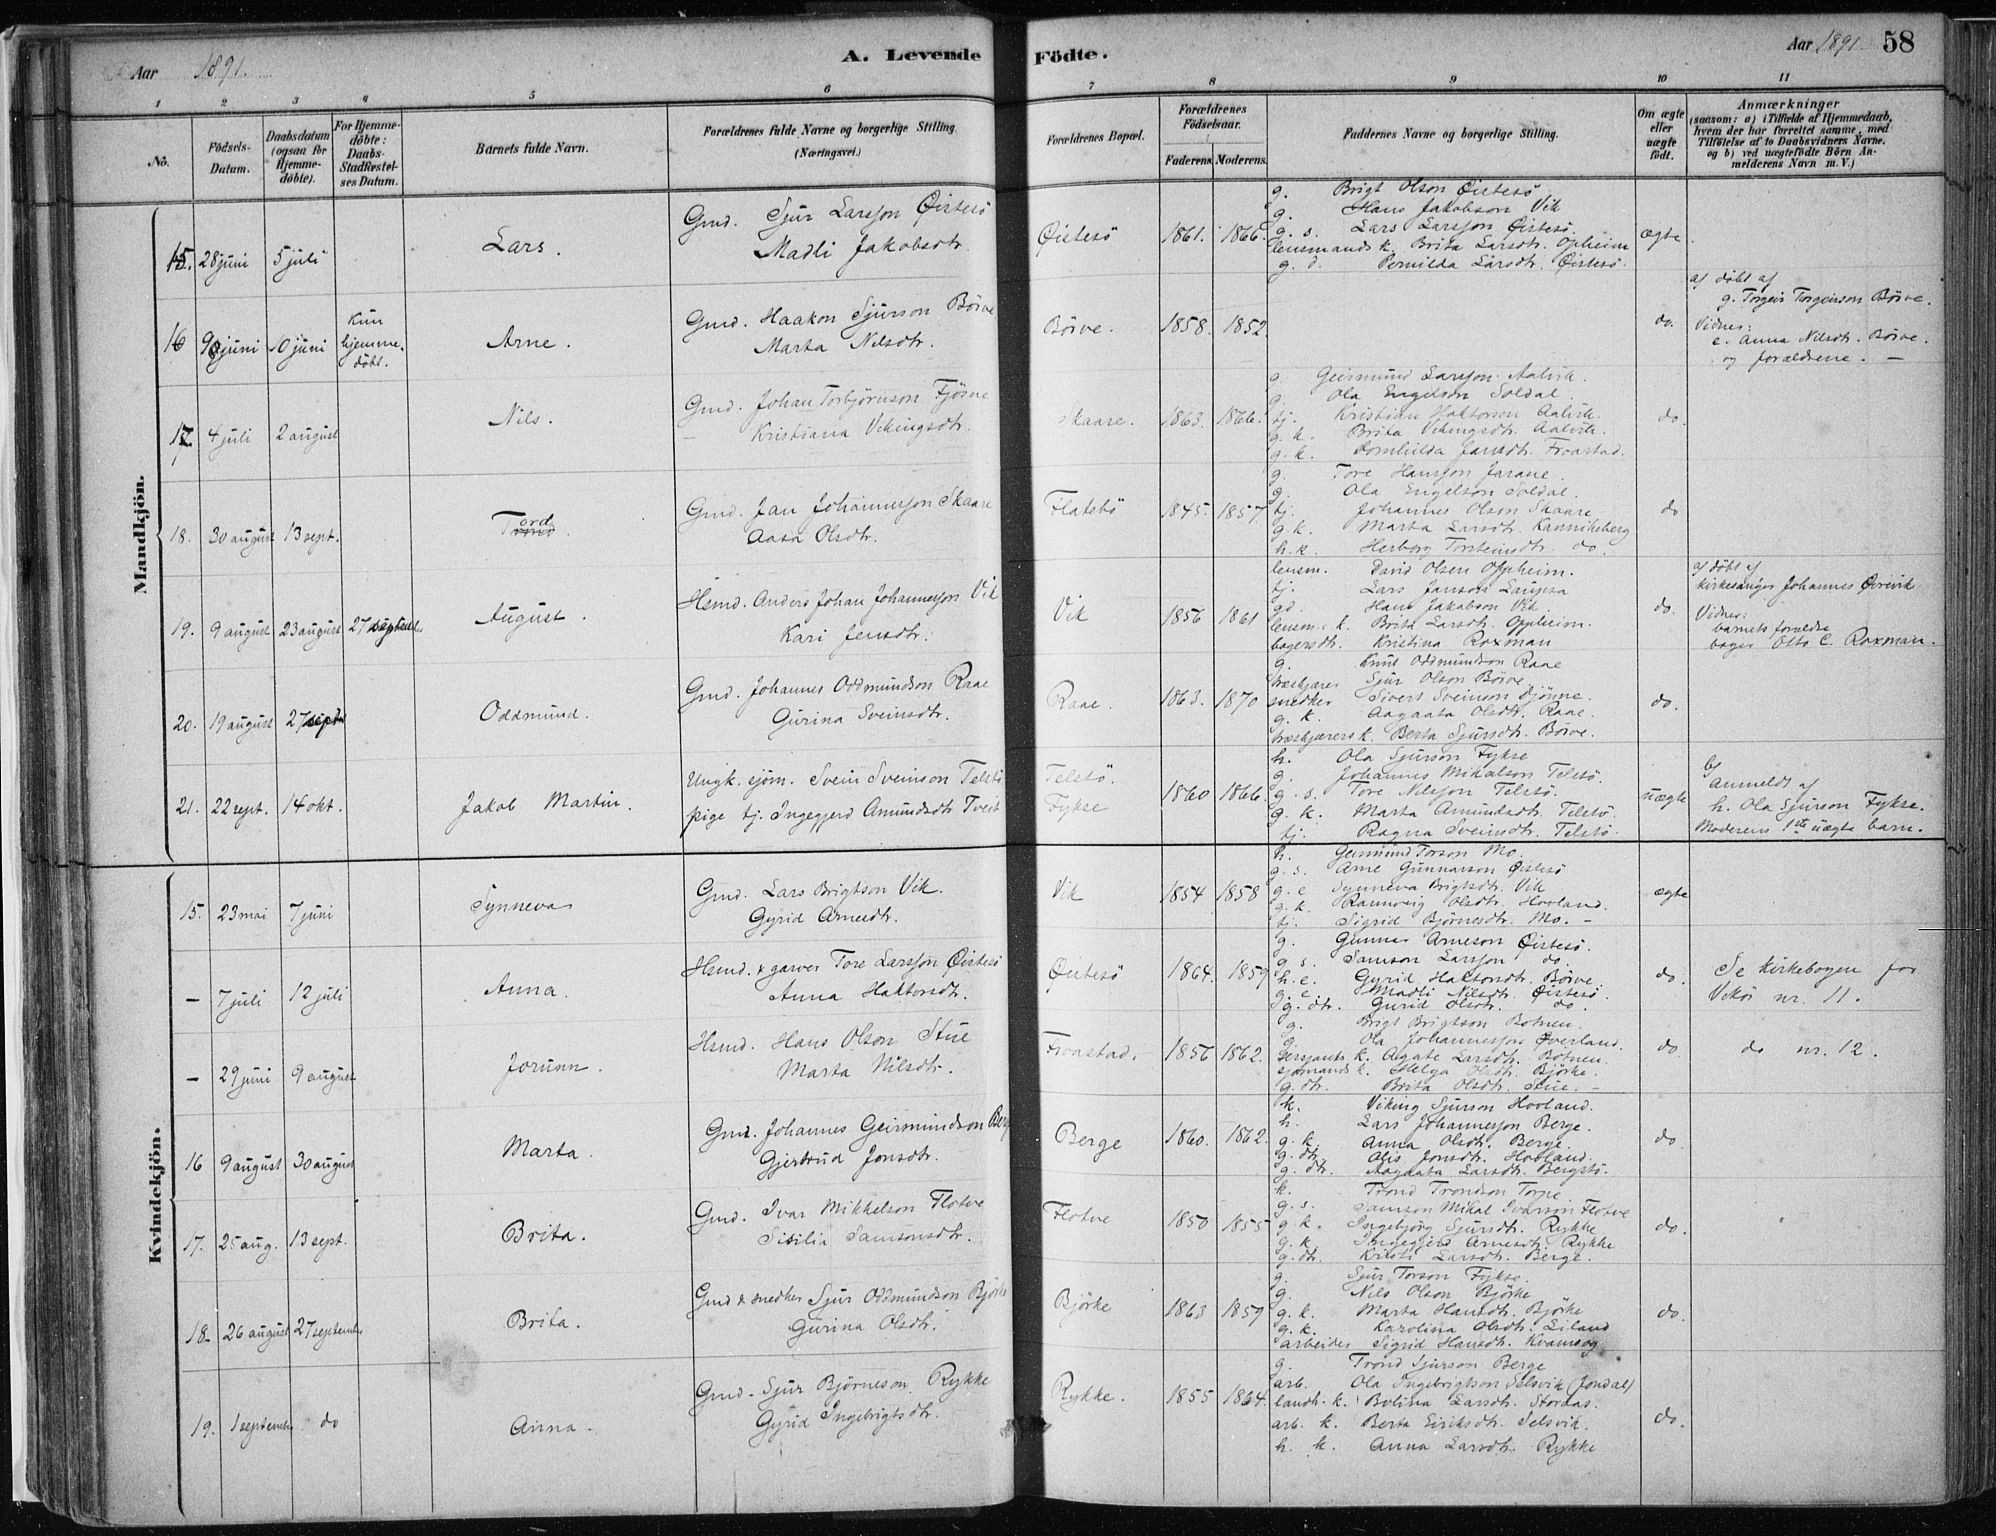 Aar 1891.
A. Levende Födte.
Aar 1891. 58
1 2 3 4 5 6 7 8 9 10 11
No.
Födsels-Datum.
Daabsdatum (ogsaa for Hjemme-döbte).
For Hjemme-döbte: Daabs-Stadfæstel-ses Datum.
Barnets fulde Navn.
Forældrenes fulde Navne og borgerlige Stilling. (Næringsvei.)
Forældrenes Bopæl.
Forældrenes Födselsaar.
Faderens. Moderens.
Faddernes Navne og borgerlige Stilling.
Om ægte eller uægte födt.
Anmærkninger
(saasom: a) i Tilfælde af Hjemmedaab,
hvem der har forrettet samme, med
Tilföielse af to Daabsvidners Navne,
og b) ved uægtefödte Börn An-
melderens Navn m. V.)
Mandkjön.
15. 28 juni 5 juli
Lars.
Gmd. Sjur Larsson Öistesö
Madli Jakobsdtr.
Öistesö 1861. 1866.
g. Brigt Olson Öistesö
g. Hans Jakobson Vik
g. s. Lars Larsson Öistesö.
lensmands k. Brita Larsdtr. Opheim
g. d. Pernilda Larsdtr. Öistesö.
ægte
16 9 juni 10 juni
Kun hjemme-döbt.
Arne.
Gmd. Haakon Sjurson Börve
Marta Nilsdtr.
Börve. 1858. 1852.
do.
a) döbt af
g. Torgeir Torgeirson Börve.
Vidner:
e. Anna Nilsdt. Börve.
og forældrene. —
17. 4 juli 2 august
Nils.
Gmd. Johan Torbjörnson Fjösne
— Kristiana Vikingsdtr.
Skaare. 1863. 1866.
g. Geirmund Larsson Aalvik.
g. Ola Engelson Soldal.
tj. Kristian Haktorson Aalvik.
g. k. Brita Vikingsdtr. Aalvik.
g. k. Domhilda Jansdtr. Froastad.
do.
18. 30 august 13 sept.
Tord.
Gmd. Jan Johannesson Skaare
Aasa Olsdtr.
Flatebö 1845. 1857
g. Tore Hansson Jarane.
g. Ola Engelson Soldal.
tj. Johannes Olson Skaare
g. k. Marta Larsdt. Kannikeberg
h. k. Herborg Torsteinsdtr. do.
do
19. 9 august 23 august 27 septemb.
August.
Hsmd. Anders Johan Johannesson Vik
Kari Jensdtr.
Vik 1856 1861
lensm. David Olsen Oppheim.
tj. Lars Janson Laupsa
gd. Hans Jakobson Vik
lensm. k. Brita Larsdt. Oppheim.
bagersdtr. Kristina Roxman
do.
a) döbt af
kirkesanger Johannes Övrevik
Vidner:
barnets forældre
bager Otto C. Roxman.
20. 19 august 27 sept.
Oddmund.
Gmd. Johannes Oddmundson Raae
Gurina Sveinsdtr.
Raae. 1863. 1870
g. Knut Oddmundson Raae
træskjærer Sjur Olson Börve
snedker Sivert Sveinson Djönne.
g. k. Aagaata Olsdt. Raae.
træskjærers k. Berta Sjursdt. Börve.
do.
21. 22 sept. 14 okt.
Jakob Martin.
Ungk. sjöm. Svein Sveinson Telstö
pige tj. Ingegjerd Amundsdtr Tveit
Telstö.
Fykse
1860 1866.
h. Ola Sjurson Fykse
g. Johannes Mikalson Telstö.
g. s. Tore Nilsson Telstö.
g. k. Marta Amundsdt. Telstö.
tj. Ragna Sveinsdtr. Telstö.
uægte
b)
Anmeldt af
h. Ola Sjurson Fykse.
Moderens 1ste uægte barn.
Kvindekjön.
15. 23 mai 7 juni
Synneva
Gmd. Lars Brigtson Vik.
Gyrid Arnesdtr.
Vik 1854 1858
h. Geirmund Torson Mo.
g. s. Arne Gunnarson Öistesö
g. e Synneva Brigtsdt. Vik
g. k. Rannveig Olsdt. Hovland.
tj. Sigrid Björnesdtr. Mo. —
ægte
— 7 juli 12 juli
Anna.
Hsmd. & garver Tore Larsson Öistesö
Anna Haktorsdtr.
Öistesö 1864. 1859
g. Gunnar Arneson Öistesö.
g. s. Samson Larsson do.
h. e. Gyrid Haktorsdt. Börve
g. e. Madli Nilsdt. Öistesö.
g. dtr. Gurid Olsdt. do.
do.
Se kirkebogen for
Vikör nr. 11.
— 29 juni 9 august
Jorunn.
Hsmd. Hans Olson Stue
Marta Nilsdtr.
Froastad. 1856 1862.
g. Brigt Brigtson Botnen.
g. Ola Johannesson Överland.
sersjants k. Aagate Larsdt. Botnen.
sjömands k. Helga Olsdt. Björke.
g. dtr. Brita Olsdt. Stue. —
do.
do nr. 12.
16 9 august 30 august
Marta.
Gmd. Johannes Geirmundson Berg
Gjertrud Jonsdtr.
Berge 1860. 1862.
k. Viking Sjurson Hovland.
h. Lars Johannesson Berge.
g. k. Anna Olsdt. Berge.
g. dtr. Olis Jonsdt. Hovland.
g. dtr. Aagaata Larsdt. Bergstö.
do
17. 25 aug. 13 sept.
Brita.
Gmd. Ivar Mikkelson Flotve
Sisilia Samsonsdtr.
Flotve 1850 1855
k. Trond Trondson Torpe.
g. s. Samson Mikal Ivarson Flotve
g. k. Ingebjörg Sjursdt. Rykke
g. k. Ingegjerd Arnesdt. Rykke
g. dtr. Kristi Larsdt. Berge.
do.
18. 26 august 27 septemb.
Brita.
Gmd & snedker Sjur Oddmundson Björke
Gurina Olsdtr.
Björke 1863 1859
g. Sjur Torson Fykse.
g. Nils Olson Björke
g. k. Marta Hansdt. Björke
g. k. Karolina Olsdt. Eiland
arbeider Sigrid Hansdt. Kvamsøg
do.
19. 1 septemb. do
Anna.
Gmd. Sjur Björneson Rykke
Gyrid Ingebrigtsdtr.
Rykke. 1855 1864.
g. Trond Sjurson Berge
arb. Ola Ingebrigtson Selsvik (Jondal)
landh. k. Bolina Larsdt. Stordas.
arb. k. Berta Eiriksdt. Selsvik.
h. k. Anna Larsdt. Rykke
do.